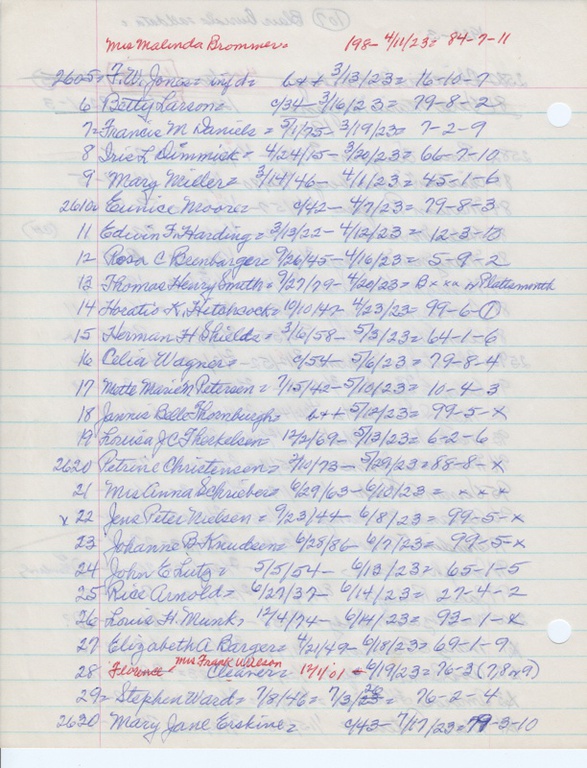 Mrs Malinda Brommer= 198- 4/11/23= 84-7-11
2605= F. W. Jones= inf'd= b++ 3/13/23= 16-10-7
6 Betty Larson= c/34- 3/16/23= 79-8-2
7= Francis M Daniels= 5/1/75- 3/19/23= 7-2-9
8 Iris L Dimmick= 4/24/15- 3/20/23= 66-7-10
9 Mary Miller= 3/14/46- 4/1/23= 45-1-6
2610= Eunice Moore= c/42- 4/7/23= 79-8-3
11 Edwin F. Harding= 3/13/22- 4/12/23= 12-3-10
12 Rosa C Benbarger= 9/26/45- 4/16/23= 5-9-2
13 Thomas Henry Smith= 9/27/79- 4/20/23= B x xa in Plattsmouth
14 Horatio K. Hitchcock= 10/10/47- 4/23/23= 99-6-①
15 Herman H Shields= 3/16/58- 5/3/23= 64-1-6
16 Celia Wagner= c/54- 5/6/23= 79-8-4
17 Mette Marie M Petersen= 7/15/42- 5/10/23= 10-4-3
18 Jannis Belle Thornburgh= b++ 5/12/23= 99-5-x
19 Louisa J C Theckelsen= 12/2/69- 5/13/23= 6-2-6
2620 Petrine Christensen= 3/10/73- 5/29/23= 88-8-x
21 Mrs Anna Schrieber= 6/29/63- 6/10/23= x x x
x 22 Jens Peter Nielsen= 9/23/44- 6/8/23= 99-5-x
23 Johanne B Knudsen= 6/28/86- 6/7/23= 99-5-x
24 John E Lutz= 5/5/54- 6/13/23= 65-1-5
25 Rice Arnold= 6/27/37- 6/14/23= 27-4-2
26 Louis H. Munk= 12/4/74- 6/14/23= 93-1-x
27 Elizabeth A Barger= 4/21/49- 6/18/23= 69-1-9
28 Florence Mrs Frank Wilson Cleaner= 12/11/01 6/19/23= 76-3 (7,8 or 9)
29= Stephen Ward= 7/8/46= 7/3/23= 76-2-4
2630 Mary Jane Erskine= c/43- 7/17/23= 79-3-10